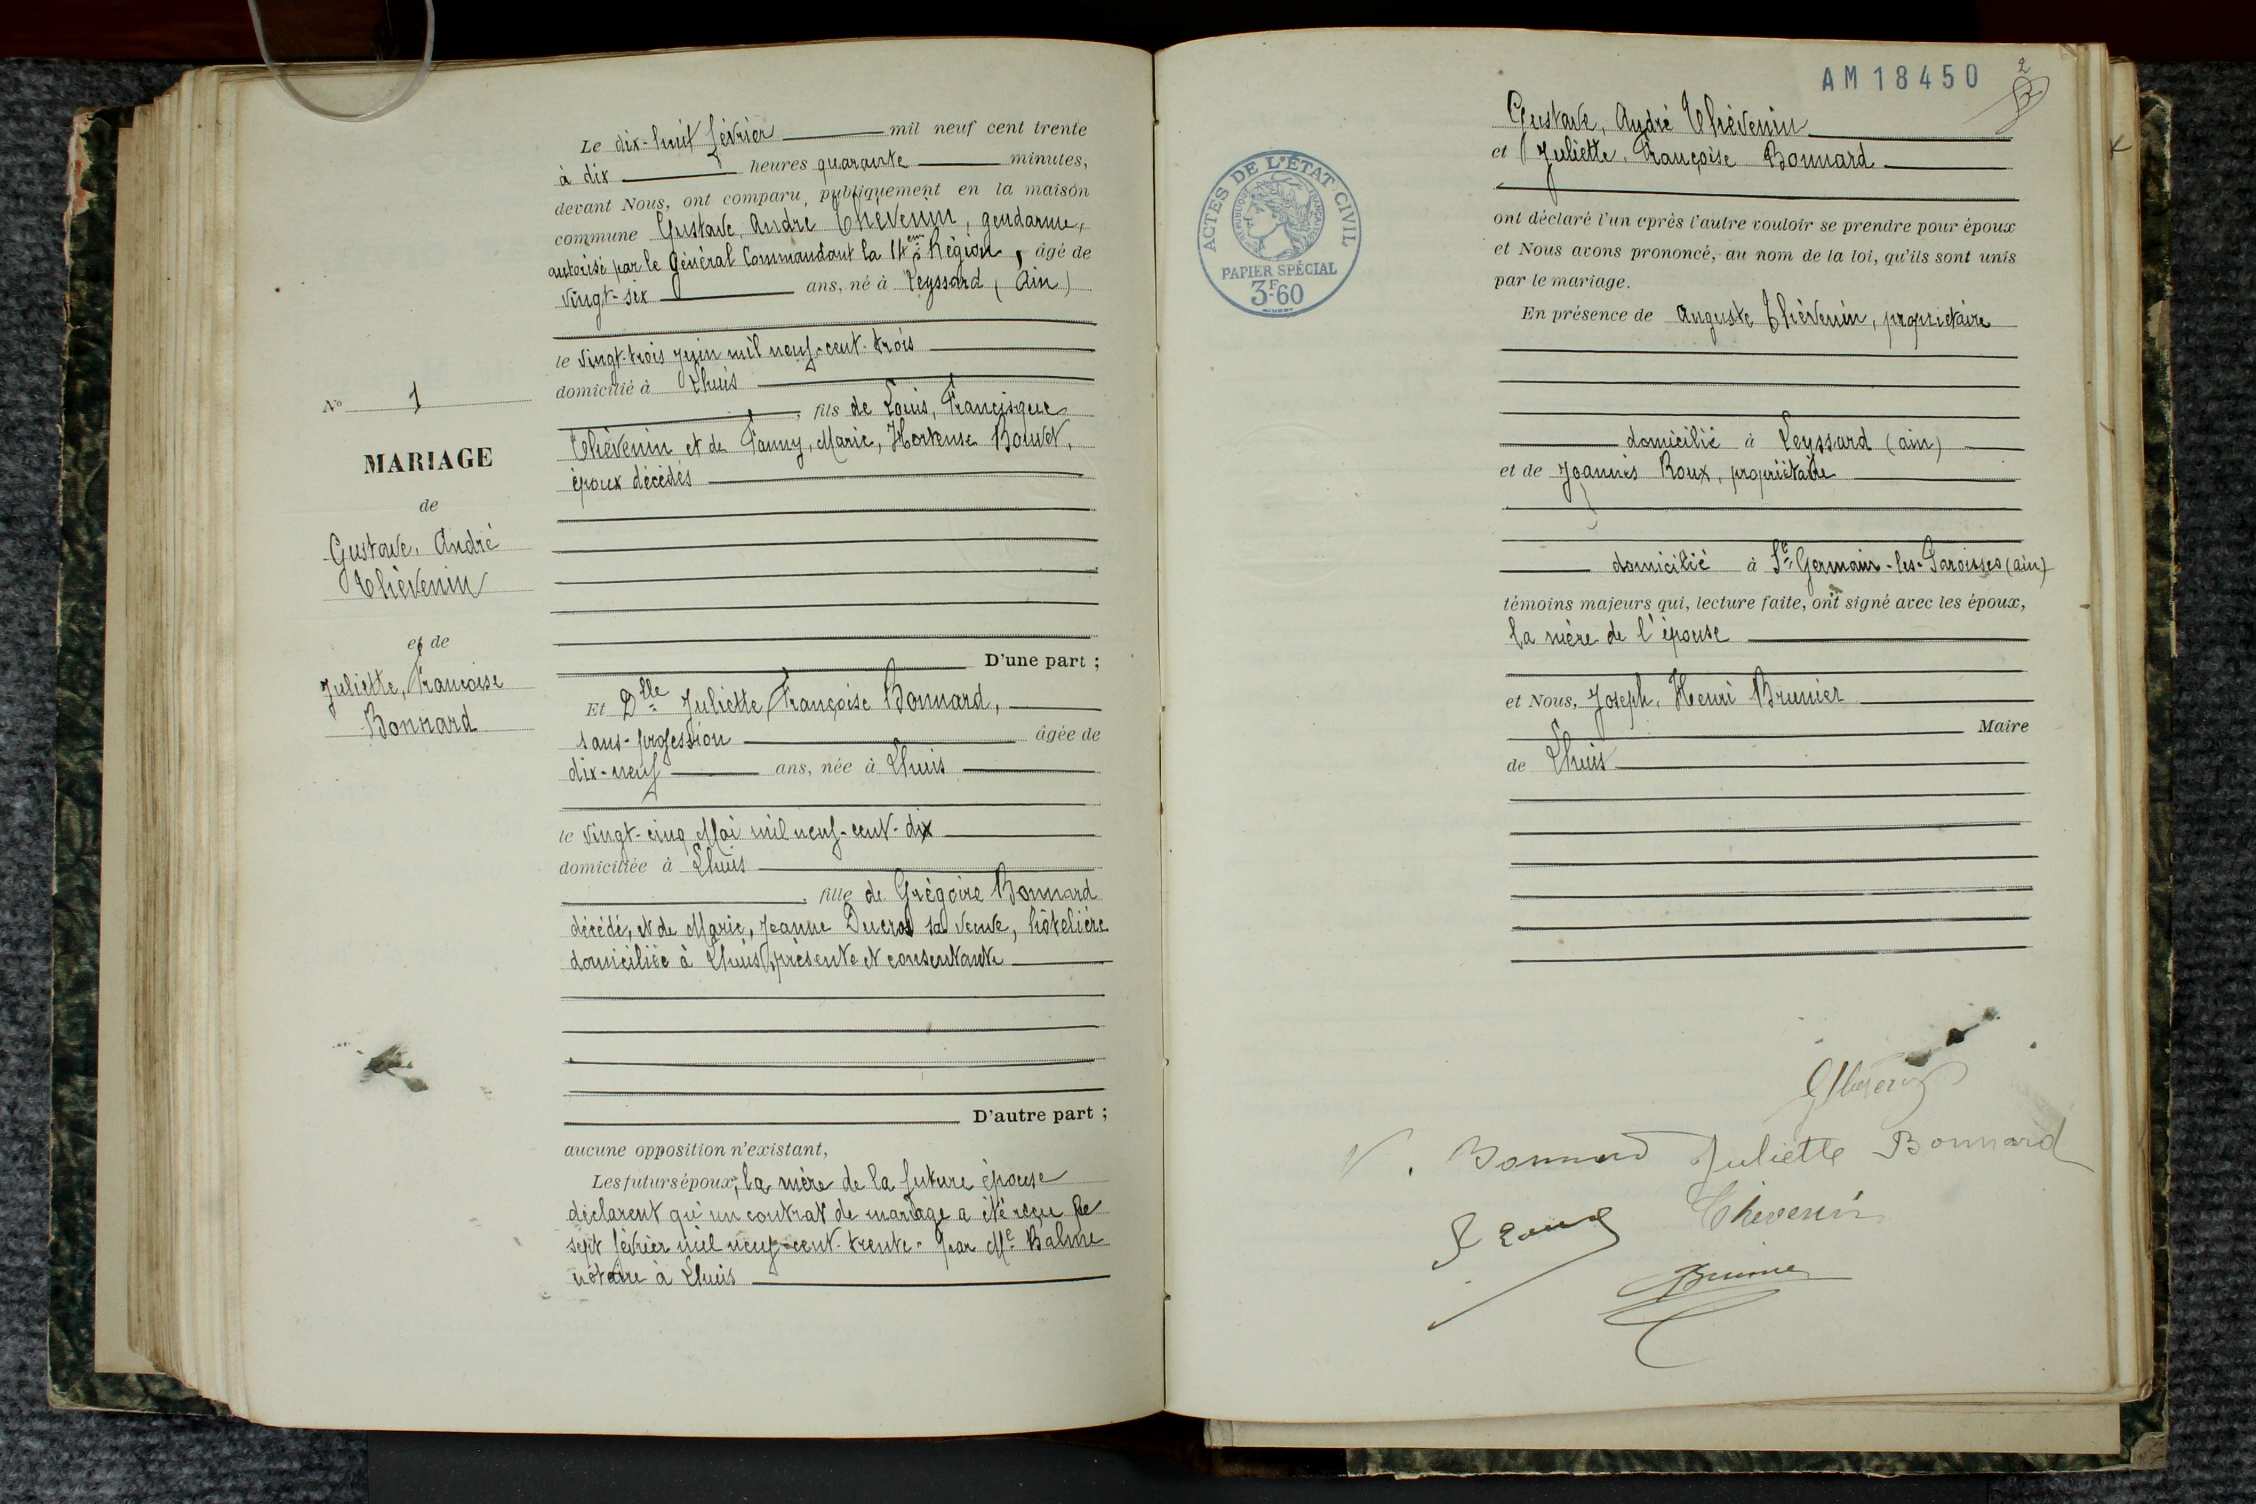 Le dix-huit février mil neuf cent trente
à dix heures quarante minutes,
devant Nous, ont comparu publiquement en la maison
commune Gustave, André Thévenin, gendarme,
autorisé par le Général Commandant la 14eme Région, âgé de
vingt-six ans, né à Leyssard (Ain)
le vingt-trois juin mil neuf-cent-trois
domicilié à Lhuis
, fils de Louis, Francisque
Thévenin et de Fanny, Marie, Hortense Bouvet,
époux décédés
D'une part ;
Et Dlle Juliette, Françoise Bonnard,
sans-profession âgée de
dix-neuf ans, née à Lhuis
le vingt-cinq Mai mil neuf-cent-dix
domiciliée à Lhuis
, fille de Grégoire Bonnard
décédé, et de Marie, Jeanne Ducros sa veuve, hôtelière
domiciliée à Lhuis, présente et consentante
D'autre part ;
aucune opposition n'existant,
Les futurs époux, la mère de la future épouse
déclarent qu'un contrat de mariage a été reçu le
sept février mil neuf-cent-trente par Me Balme
notaire à Lhuis
No 1
MARIAGE
de
Gustave, André
Thévenin
et de
Juliette, Françoise
Bonnard
AM18450
2
ACTES DE L'ÉTAT CIVIL
RÉPUBLIQUE FRANÇAISE
PAPIER SPÉCIAL
3F60
Gustave, André Thévenin
et Juliette, Françoise Bonnard
ont déclaré l'un après l'autre vouloir se prendre pour époux
et Nous avons prononcé, au nom de la loi, qu'ils sont unis
par le mariage.
En présence de Auguste Thévenin, propriétaire
domicilié à Leyssard (ain)
et de Joannès Roux, propriétaire
domicilié à St Germain-les-Paroisses (ain)
témoins majeurs qui, lecture faite, ont signé avec les époux,
la mère de l'épouse
et Nous, Joseph, Henri Brunier
Maire
de Lhuis
V. Bonnard Juliette Bonnard
Thévenin
Brunier